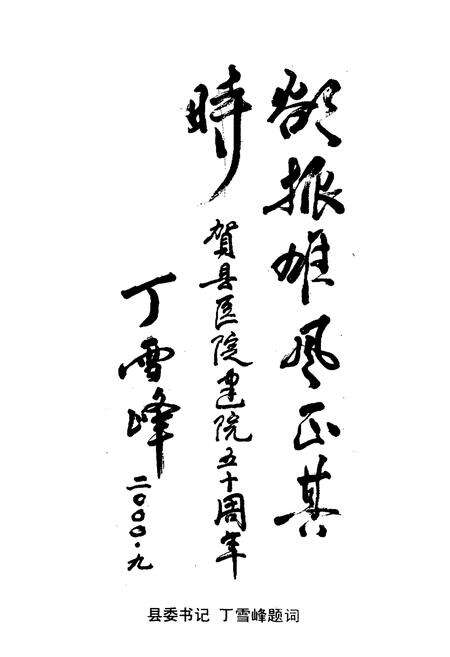 欲振雄风正其
時
賀县医院建院五十周年
丁雪峰
二〇〇〇·九
县委书记 丁雪峰题词